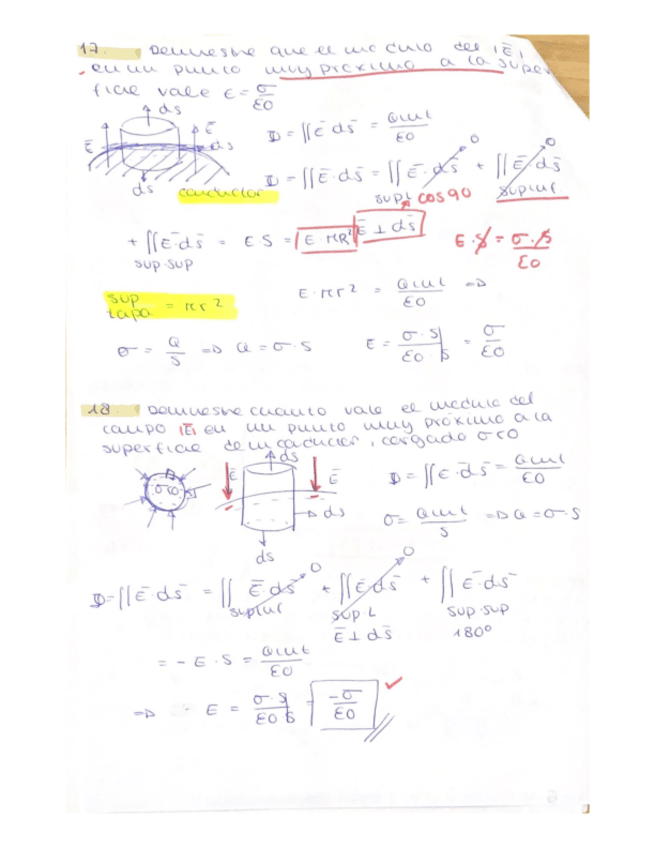 17. Demuestre que el modulo del |E̅|
en un punto muy próximo a la super
ficie vale E = σ/ε0
ds
E̅ E̅ ds
ds conductor
Φ = ∬E̅·ds̅ = Qint/ε0
Φ = ∬E̅·ds̅ = ∬E̅·ds̅ 0 + ∬E̅·ds̅ 0
sup L cos 90 sup inf
+ ∬E̅·ds̅ = E·S = E·πR² E̅ ⊥ ds̅ E·S = σ·S/ε0
sup·sup
sup tapa = πr²
E·πr² = Qint/ε0 ⇒
σ = Q/S ⇒ Q = σ·S E = σ·S/ε0·S = σ/ε0
18. Demuestre cuanto vale el modulo del
campo |E̅| en un punto muy próximo a la
superficie de un conductor, cargado σ<0
σ<0 E̅ ds E̅
ds̅
ds
Φ = ∬E̅·ds̅ = Qint/ε0
σ = Qint/S ⇒ Q = σ·S
Φ = ∬E̅·ds̅ = ∬E̅·ds̅ 0 + ∬E̅·ds̅ 0 + ∬E̅·ds̅
sup inf sup L sup·sup
E̅ ⊥ ds̅ 180º
= - E·S = Qint/ε0
⇒ - E = σ·S/ε0·S = -σ/ε0